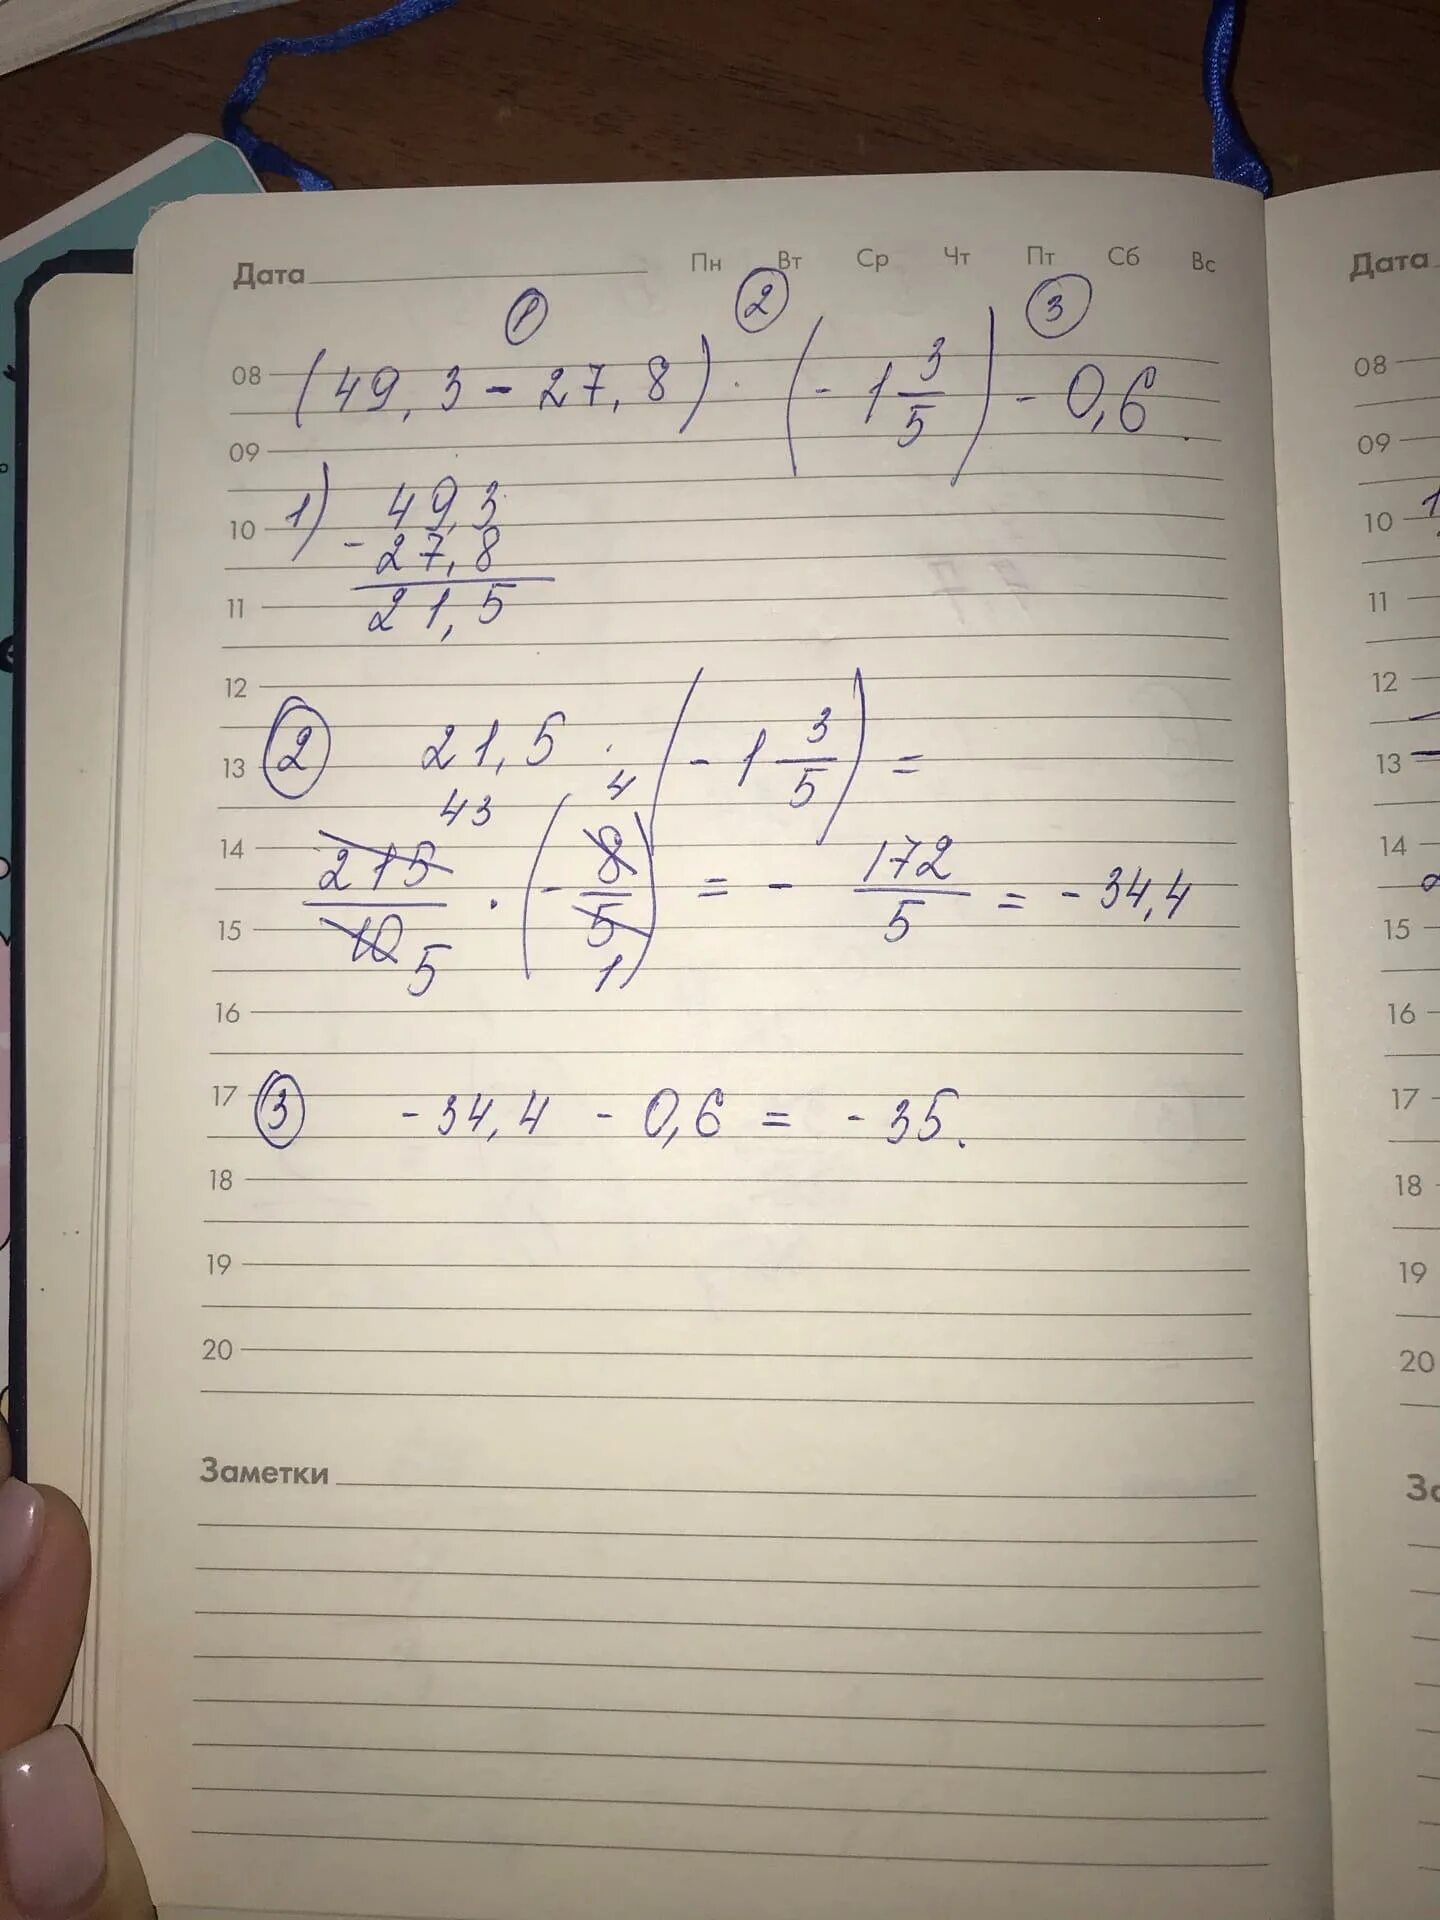 Дата Пн Вт Ср Чт Пт Сб Вс
1 2 3
08 (49,3 - 27,8) · (-1 3/5) - 0,6
09
1) 49,3
10 - 27,8
11 21,5
12
2 21,5 · (-1 3/5) =
13
43 4
14 215/10 · (-8/5) = - 172/5 = -34,4
15 5 1
16
17 3 -34,4 - 0,6 = -35.
18
19
20
Заметки
Дата
08
09
10
11
12
13
14
15
16
17
18
19
20